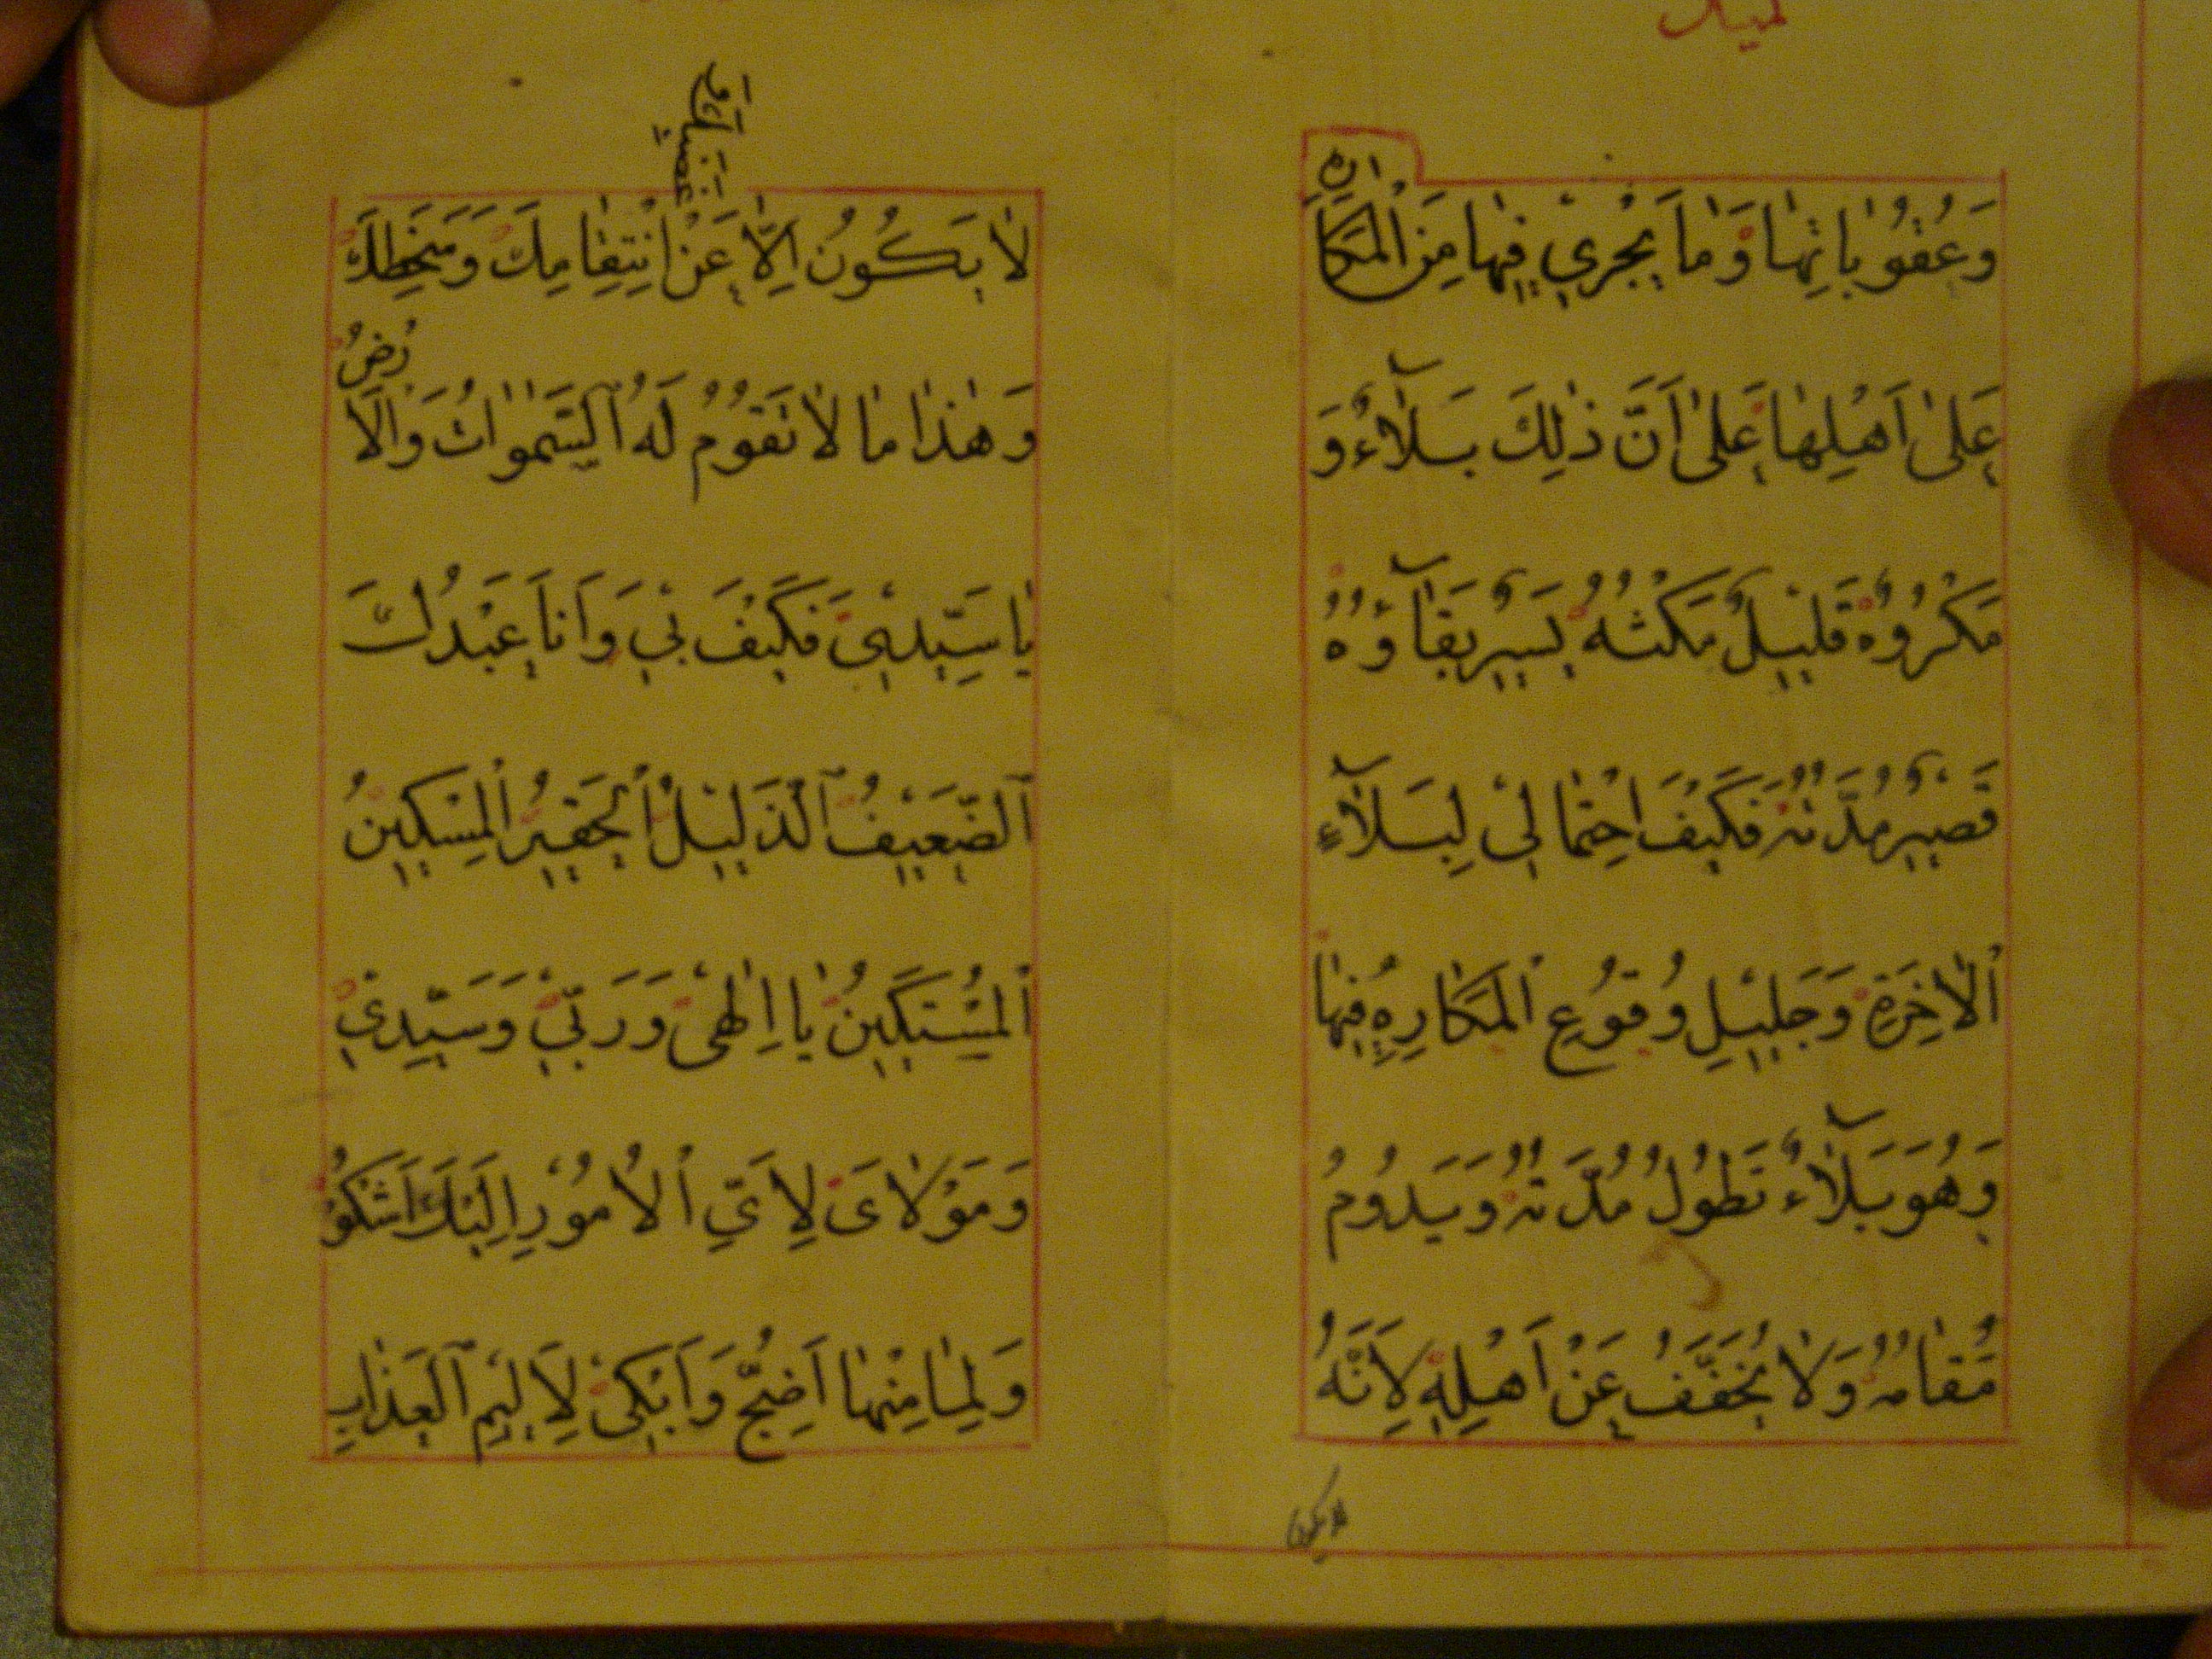 كميل
وَعُقُوبٰاتِهٰا وَمٰا يَجْرِي فِيهٰا مِنَ الْمَكٰارِهِ
عَلىٰ اَهْلِهٰا عَلىٰ اَنَّ ذٰلِكَ بَلٰٓاءٌ وَ
مَكْرُوهٌ قَلِيلٌ مَكْثُهُ يَسِيرٌ بَقٰٓاؤُهُ
قَصِيرٌ مُدَّتُهُ فَكَيْفَ احْتِمٰالِي لِبَلٰٓاءِ
الْاٰخِرَةِ وَجَلِيلِ وُقُوعِ الْمَكٰارِهِ فِيهٰا
وَهُوَ بَلٰٓاءٌ تَطُولُ مُدَّتُهُ وَيَدُومُ
مُقٰامُهُ وَلٰا يُخَفَّفُ عَنْ اَهْلِهِ لِاَنَّهُ
لايكون
غَضَبِكَ وَ
لٰا يَكُونُ اِلّٰا عَنْ انْتِقٰامِكَ وَسَخَطِكَ
وَهٰذٰا مٰا لٰا تَقُومُ لَهُ السَّمٰوٰاتُ وَالْاَرْضُ
يٰا سَيِّدِي فَكَيْفَ بِي وَاَنَا عَبْدُكَ
الضَّعِيفُ الذَّلِيلُ الْحَقِيرُ الْمِسْكِينُ
الْمُسْتَكِينُ يٰا اِلٰهِي وَرَبِّي وَسَيِّدِي
وَمَوْلٰايَ لِاَيِّ الْاُمُورِ اِلَيْكَ اَشْكُو
وَلِمٰا مِنْهٰا اَضِجُّ وَاَبْكِي لِاَلِيمِ الْعَذٰابِ